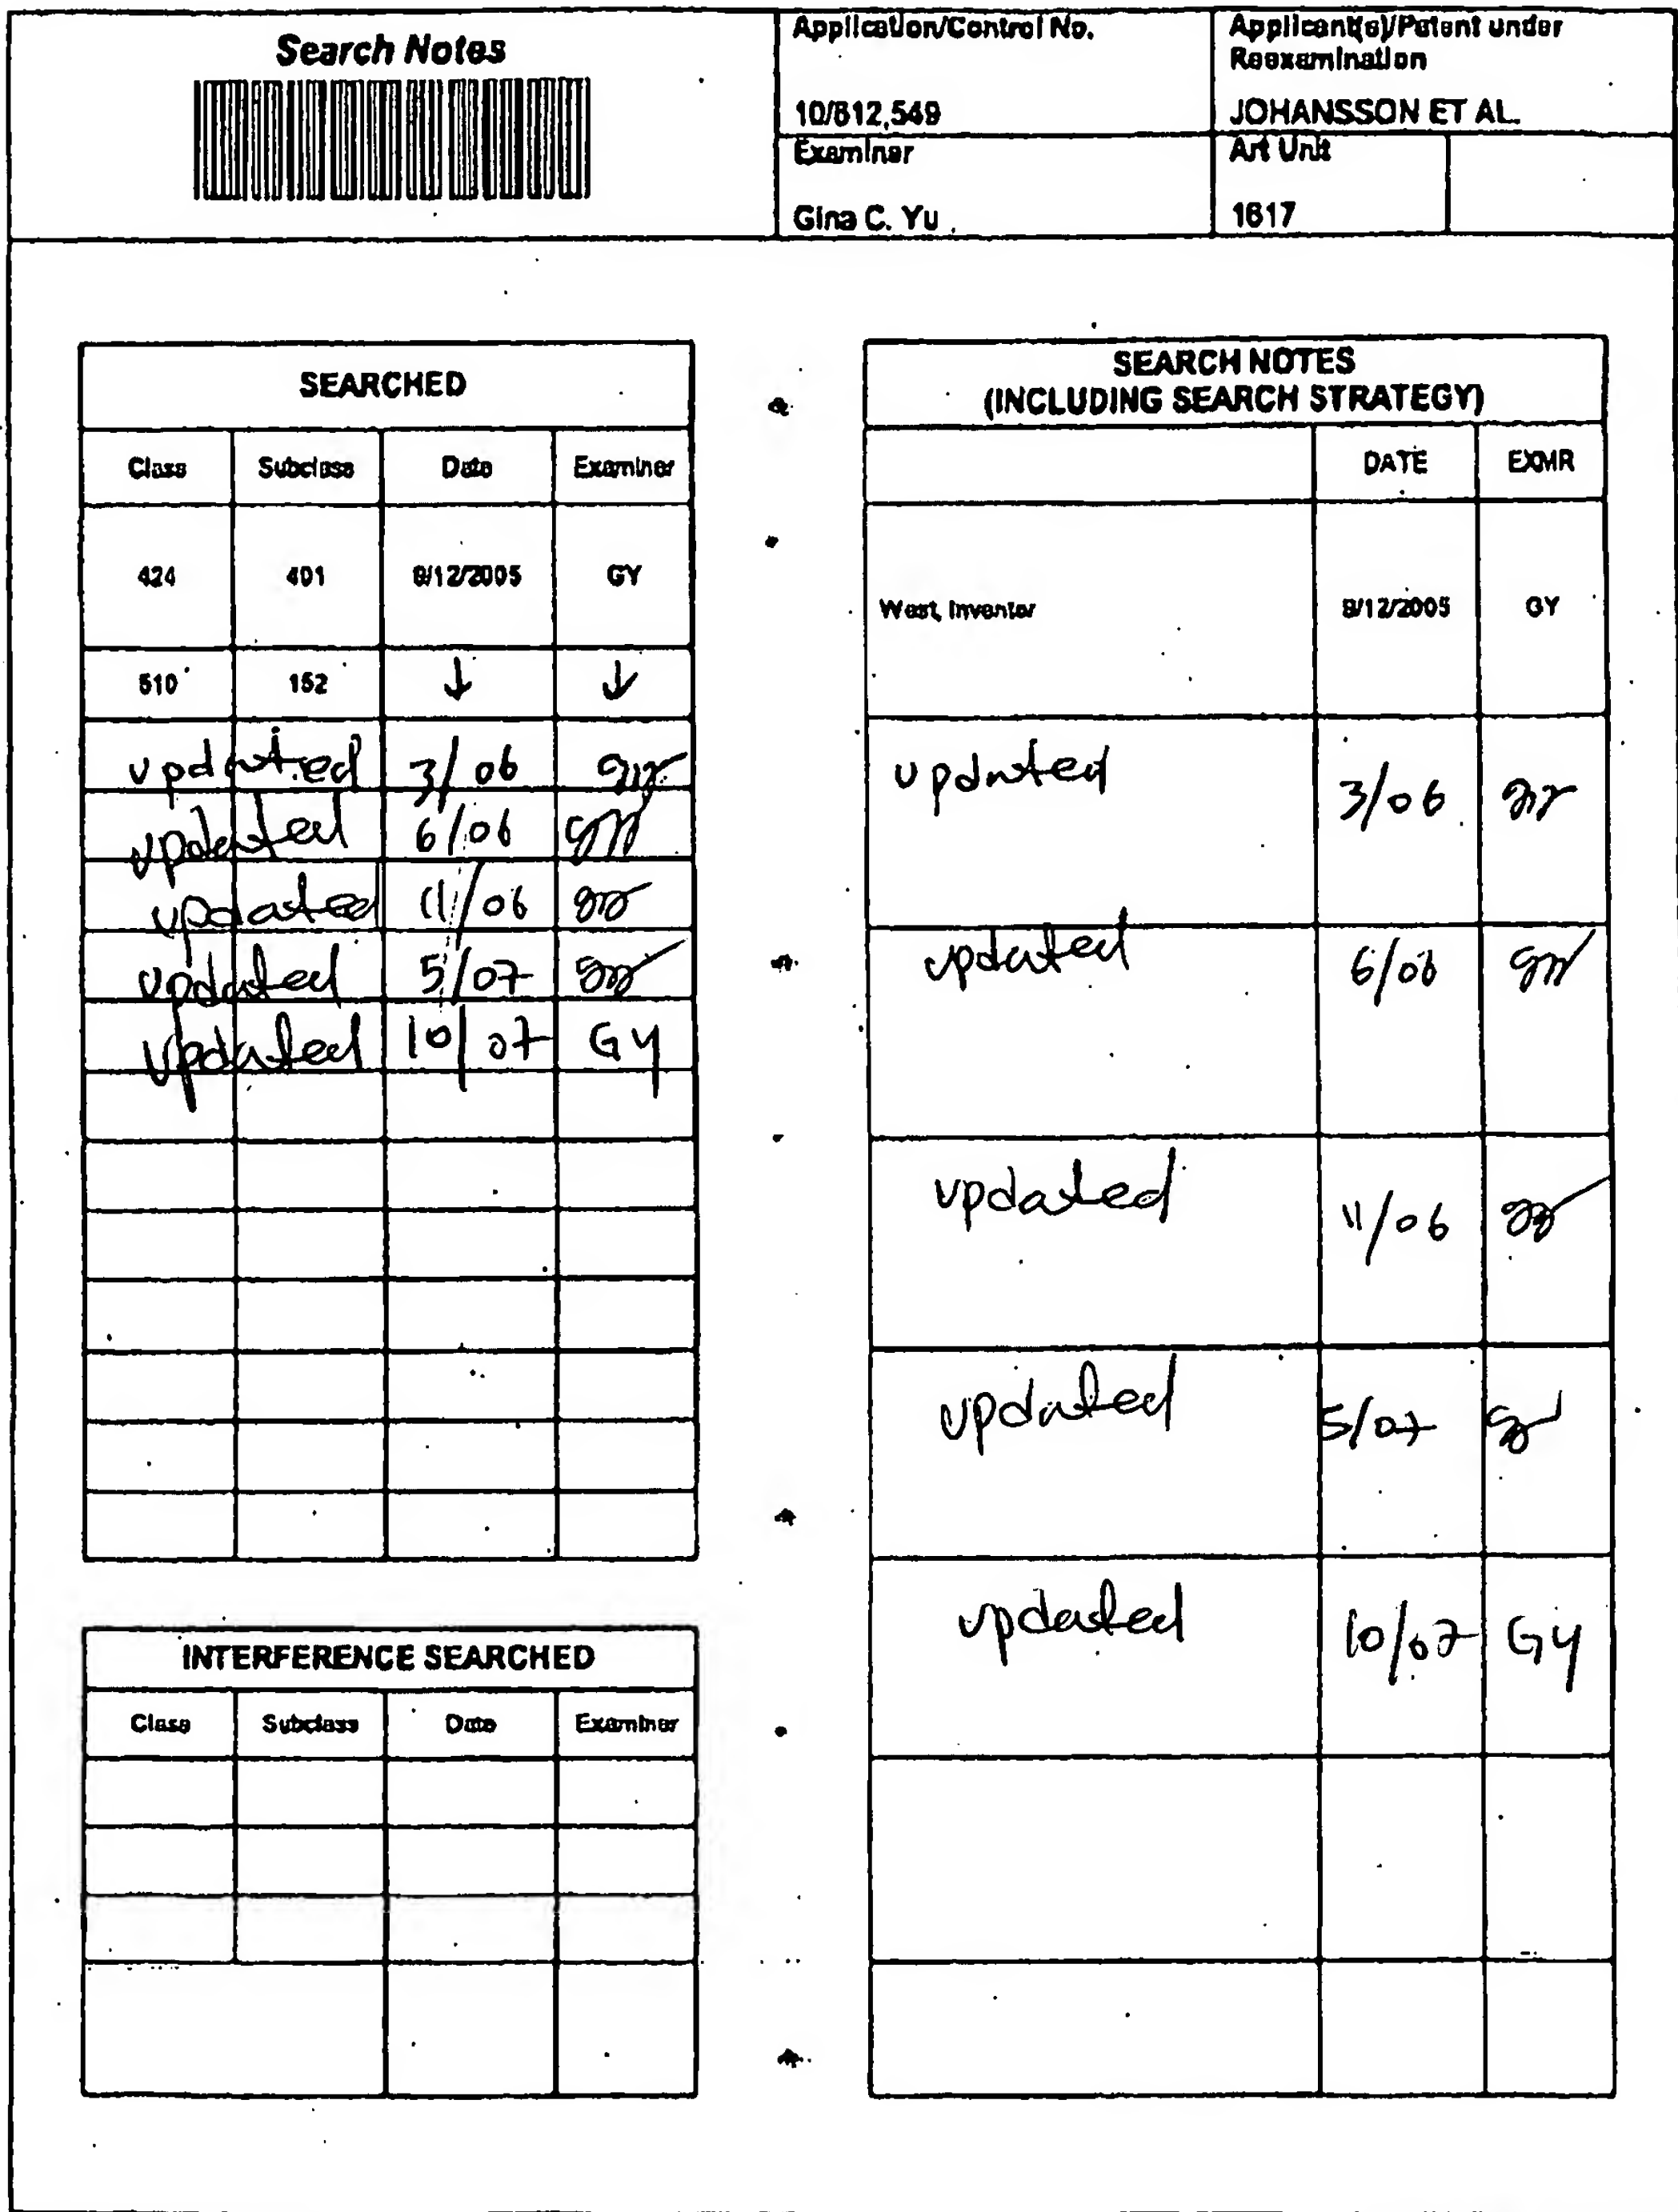 Search Notes
Application/Control No.
10/812,549
Applicant(s)/Patent under
Reexamination
JOHANSSON ET AL.
Examiner
Gina C. Yu
Art Unit
1617
SEARCHED
Class Subclass Date Examiner
424 401 9/12/2005 GY
510 152 ↓ ↓
updated 3/06
updated 6/06
updated 11/06
updated 5/07
updated 10/07 GY
INTERFERENCE SEARCHED
Class Subclass Date Examiner
SEARCH NOTES
(INCLUDING SEARCH STRATEGY)
DATE EXMR
West, Inventor 9/12/2005 GY
updated 3/06
updated 6/06
updated 11/06
updated 5/07
updated 10/07 GY